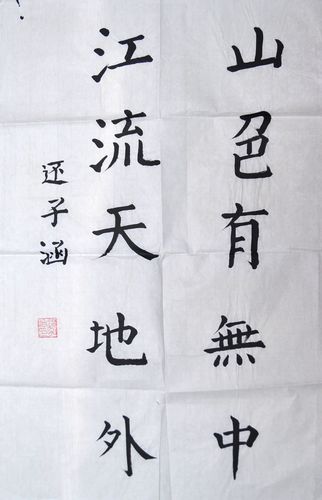 山色有無中
江流天地外
还子涵